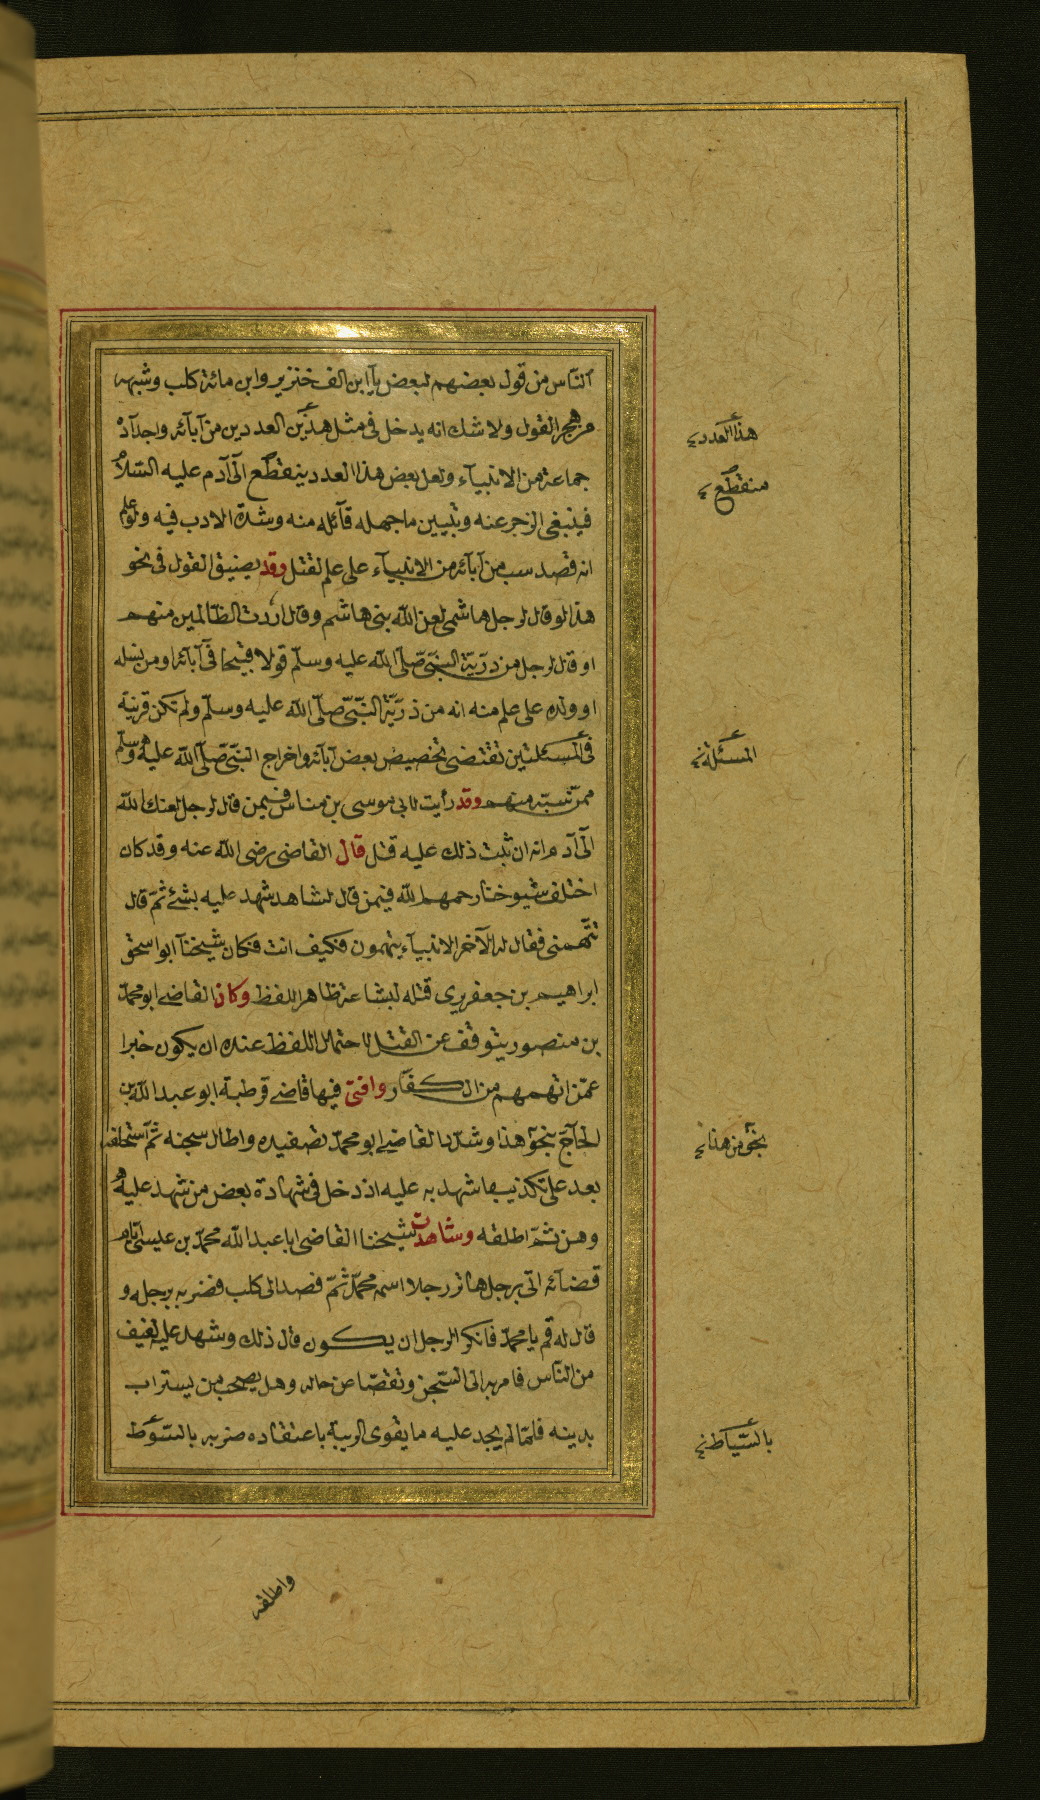 النّاس من قول بعضهم لبعض يا ابن الف خنزير وابن مائة كلب وشبهه
من هجر القول ولا شك انه يدخل فى مثل هذين العددين من آبائه واجداده
جماعة من الانبياء ولعل بعض هذا العدد ينقطع الى آدم عليه السّلام
فينبغى الزجر عنه وتبيين ما جهله قآئله منه وشدة الادب فيه ولو علم
انه قصد سب من آبائه من الانبيآء على علم لقتل وقد يضيق القول فى نحو
هذا لو قال لرجل هاشمى لعن الله بنى هاشم وقال اردت الظالمين منهم
او قال لرجل من ذرّيّة النبىّ صلّى الله عليه وسلّم قولا قبيحا فى آبائه او من نسله
او ولده على علم منه انه من ذرّيّة النّبىّ صلّى الله عليه وسلّم ولم تكن قرينة
فى المسئلتين تقتضى تخصيص بعض آبائه واخراج النّبىّ صلّى الله عليه وسلّم
ممن سبّه منهم وقد رأيت لابى موسى بن مناس فيمن قال لرجل لعنك الله
الى آدم انه ان ثبت ذلك عليه قتل قال القاضى رضى الله عنه وقد كان
اختلف شيوخنا رحمهم الله فيمن قال لشاهد شهد عليه بشئ ثمّ قال
تتّهمنى فقال له الآخر الانبيآء يتهمون فكيف انت فكان شيخنا ابو اسحق
ابراهيم بن جعفر يرى قتله لبشاعة ظاهر اللفظ وكان القاضى ابو محمّد
بن منصور يتوقف عن القتل لاحتمال اللفظ عنده ان يكون خبرا
عمّن اتهمهم من الكفّار وافتى فيها قاضى قرطبة ابو عبد الله بن
الحاجّ بنحو هذا وشدّد القاضى ابو محمّد تصفيده واطال سجنه ثمّ استحلفه
بعد على تكذيب ما شهد به عليه اذ دخل فى شهادة بعض من شهد عليه
وهن ثمّ اطلقه وشاهدت شيخنا القاضى ابا عبد الله محمّد بن عيسى ايّام
قضآئه اتى برجل هاتر رجلا اسمه محمّد ثمّ قصد الى كلب فضربه برجله و
قال له قم يا محمّد فانكر الرجل ان يكون قال ذلك وشهد عليه لفيف
من النّاس فامر به الى السّجن وتقصّا عن حاله وهل يصحب من يستراب
بدينه فلمّا لم يجد عليه ما يقوى الريبة باعتقاده ضربه بالسّوط
واطلقه
هذا العدد
منقطع
المسئلة
بنحو من هذا
بالسّياط